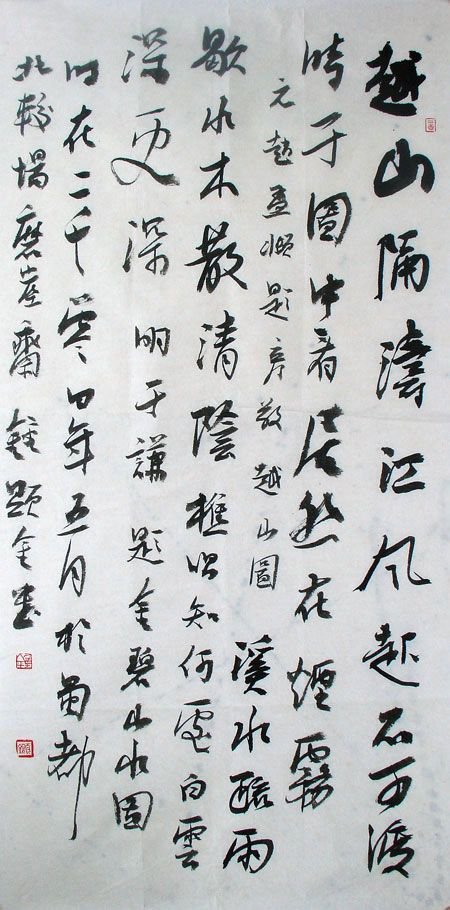 越山隔濤江風起不可渡
時于圖中看居然在煙霧
元趙孟頫題彦敬越山圖 溪水雨
歇水木散清陰樵唱知何處白雲
深更深 明于謙題金碧山水圖
時在二千零四年五月於蜀都
北較場磨崖齋 金書